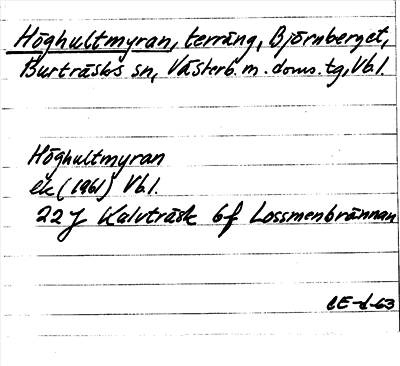 Höghultmyran, terräng, Björnberget,
Burträsks sn, Västerb. m. doms. tg, Vb.l.
Höghultmyran
ek (1961) Vb.l.
22J Kalvträsk 6f Lossmenbrännan
CE-d-63